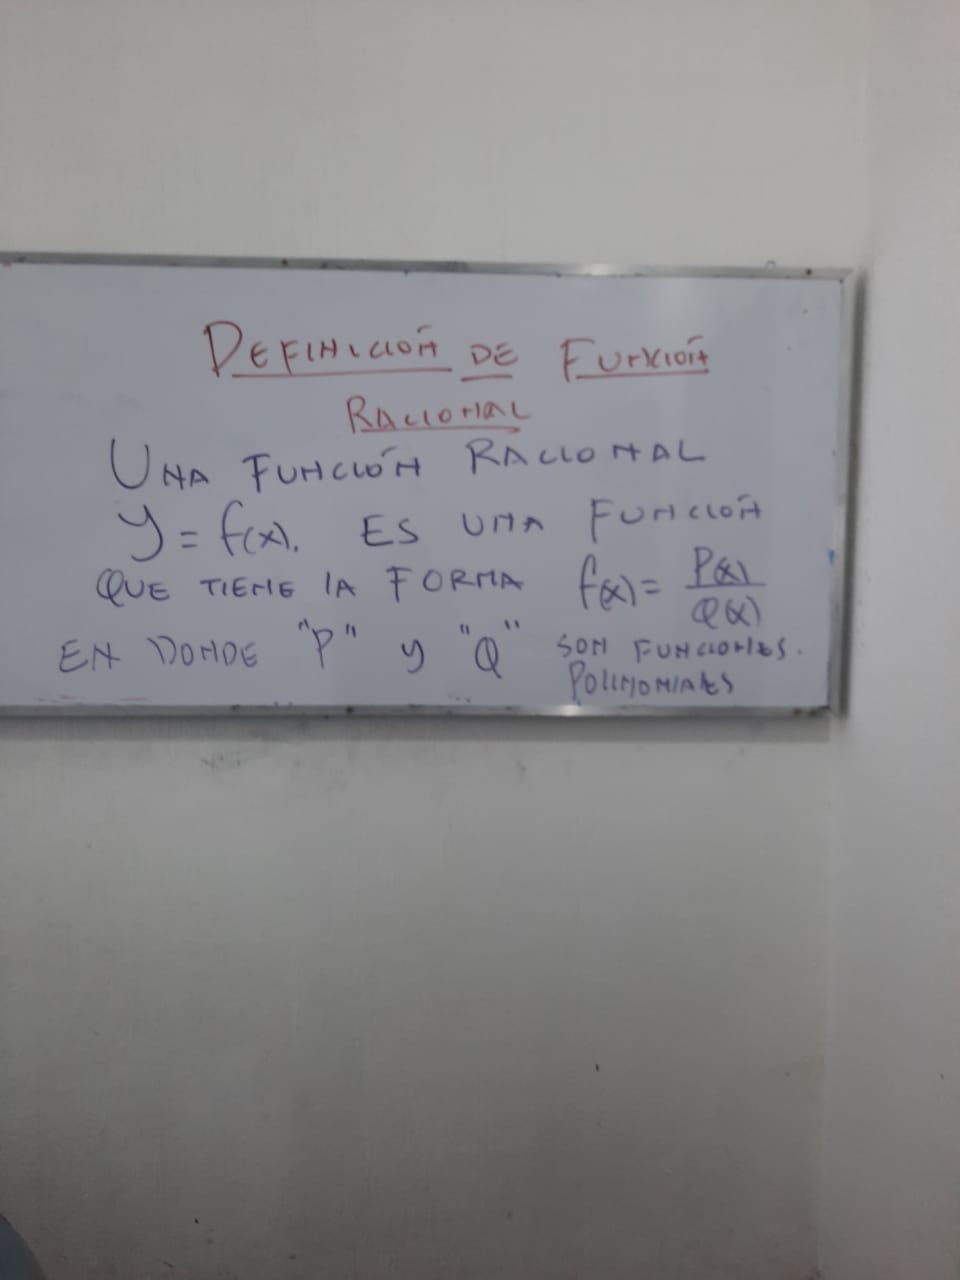 DEFINICIÓN DE FUNCIÓN
RACIONAL
UNA FUNCIÓN RACIONAL
y = f(x). ES UNA FUNCIÓN
QUE TIENE LA FORMA f(x) = P(x)/Q(x)
EN DONDE "P" y "Q" SON FUNCIONES.
POLINOMIALES